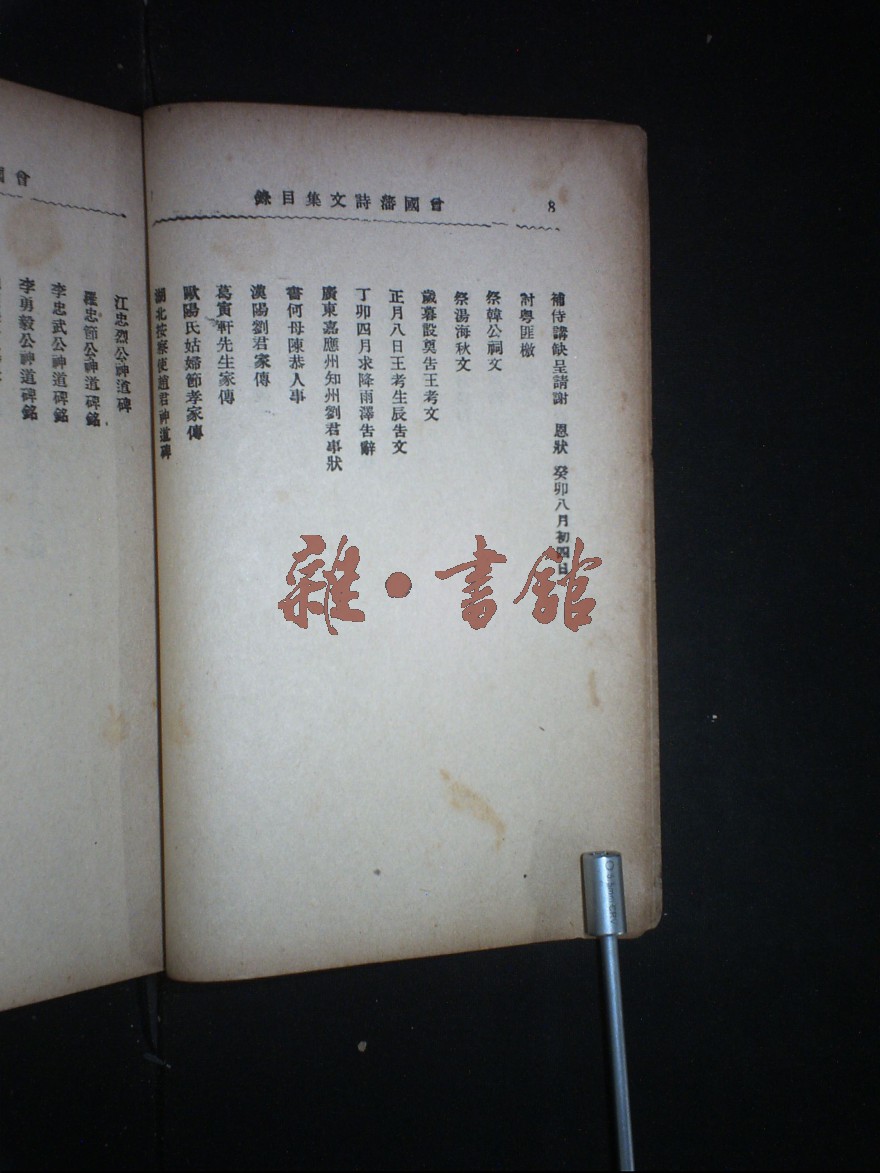 8
曾國藩詩文集目錄
補侍講缺呈請謝 恩狀 癸卯八月初四日
討粵匪檄
祭韓公祠文
祭湯海秋文
歲暮設奠告王考文
正月八日王考生辰告文
丁卯四月求降雨澤告辭
廣東嘉應州知州劉君事狀
書何母陳恭人事
漢陽劉君家傳
葛寅軒先生家傳
歐陽氏姑婦節孝家傳
湖北按察使趙君神道碑
曾國
江忠烈公神道碑
羅忠節公神道碑銘
李忠武公神道碑銘
李勇毅公神道碑銘
雜·書館